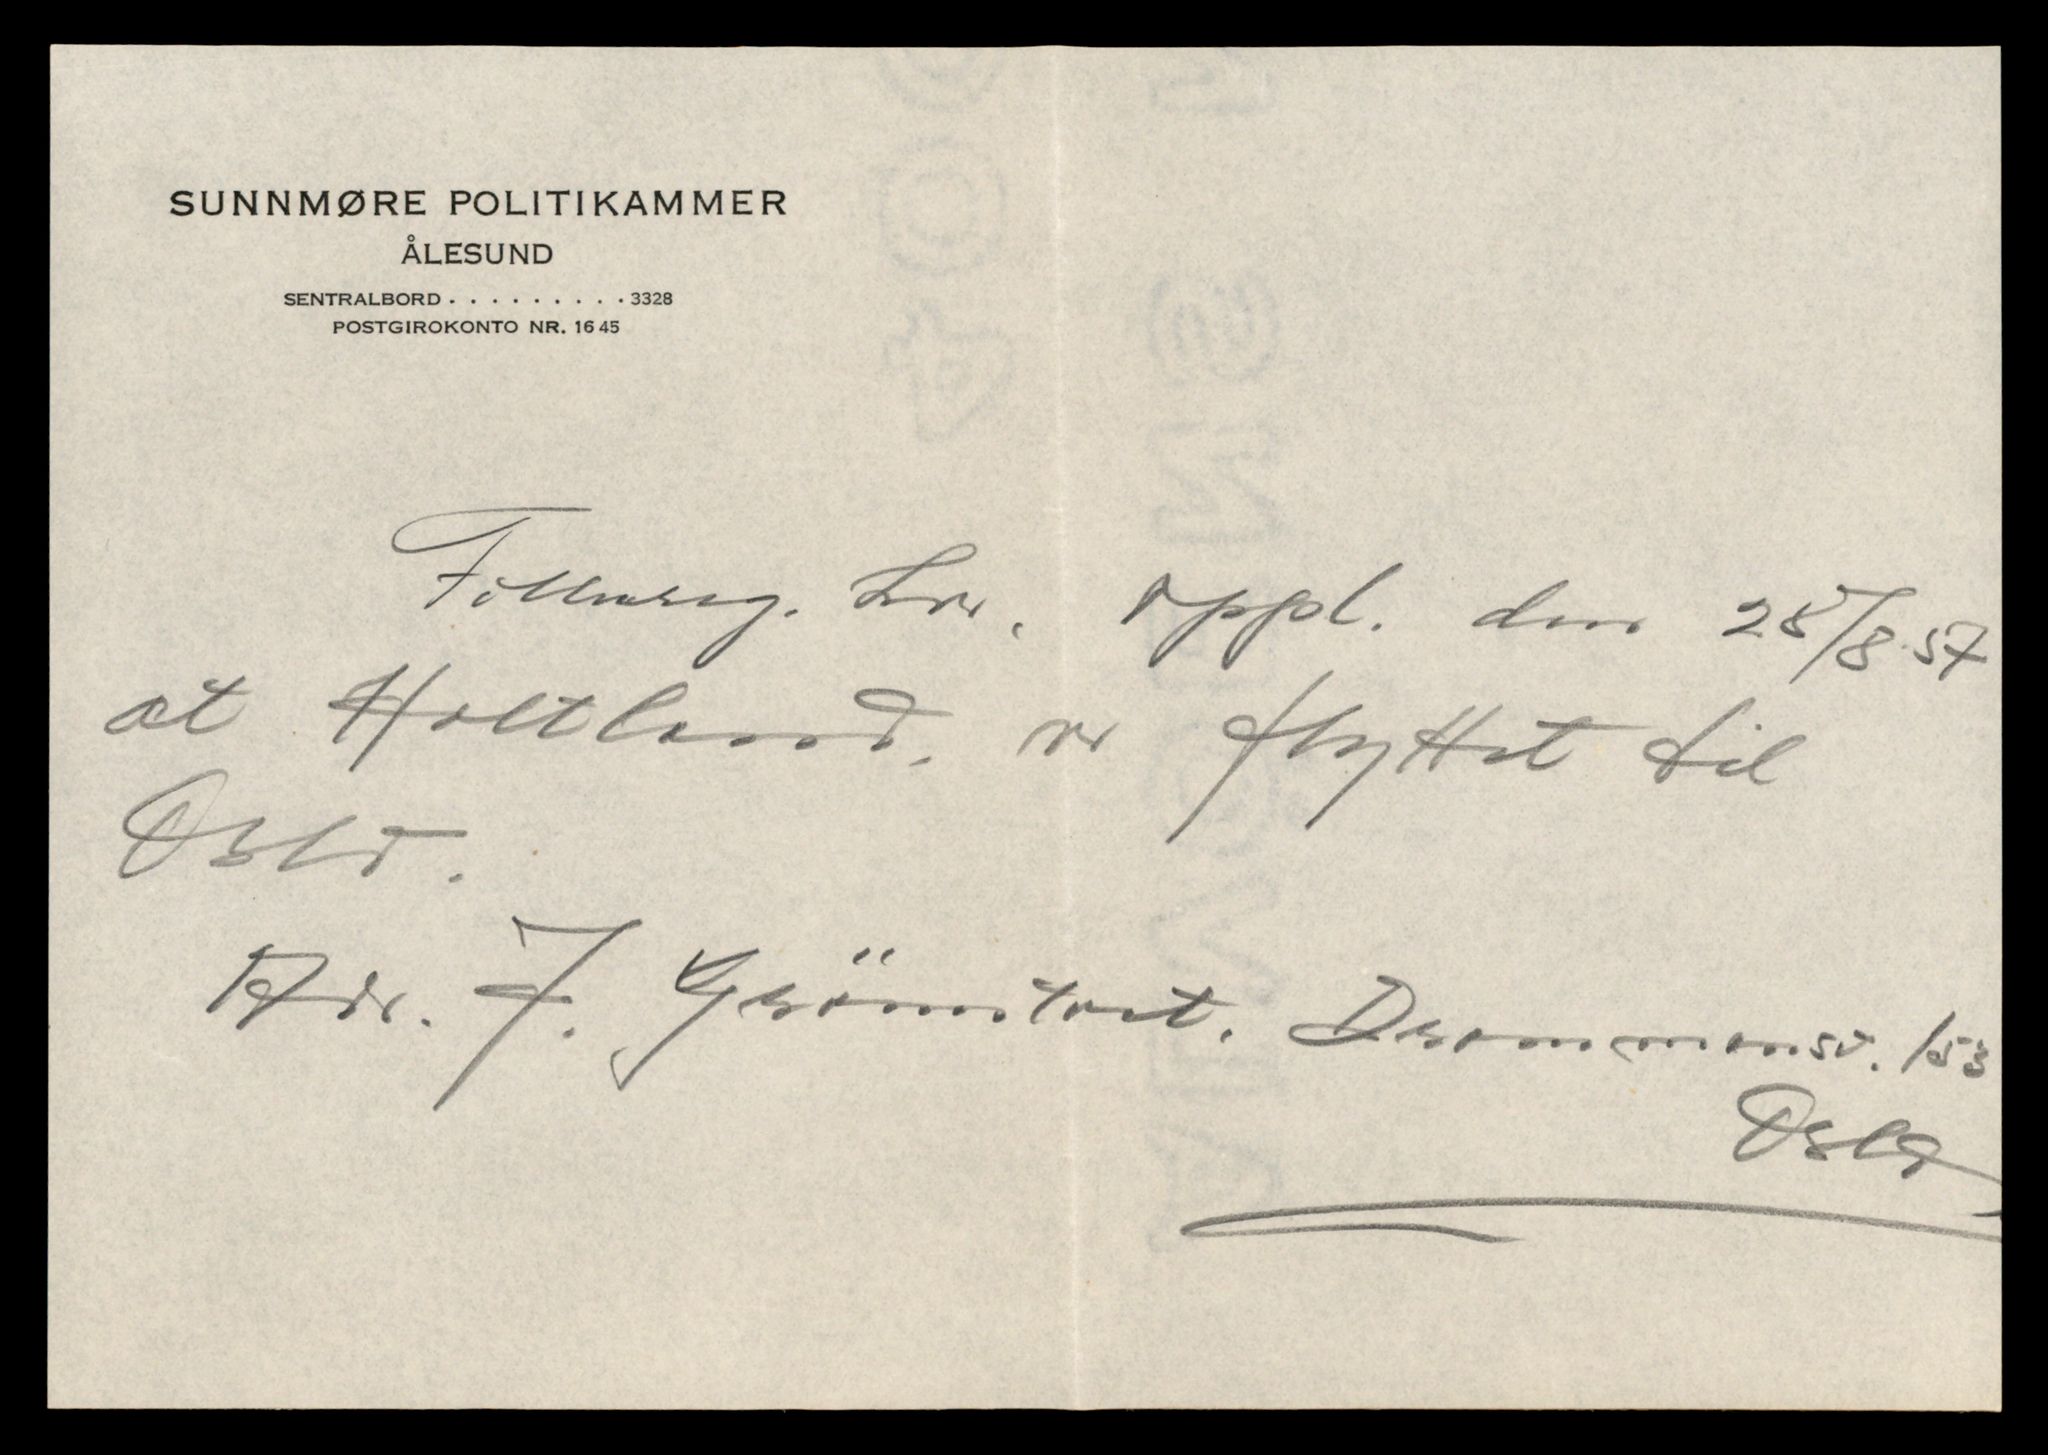 SUNNMØRE POLITIKAMMER
ÅLESUND
SENTRALBORD . . . . . . . . . 3328
POSTGIROKONTO NR. 1645
oppl. den 28/8.57
at Holtland. er flyttet til
Oslo.
Adr. J. Drammensv. 153
Oslo